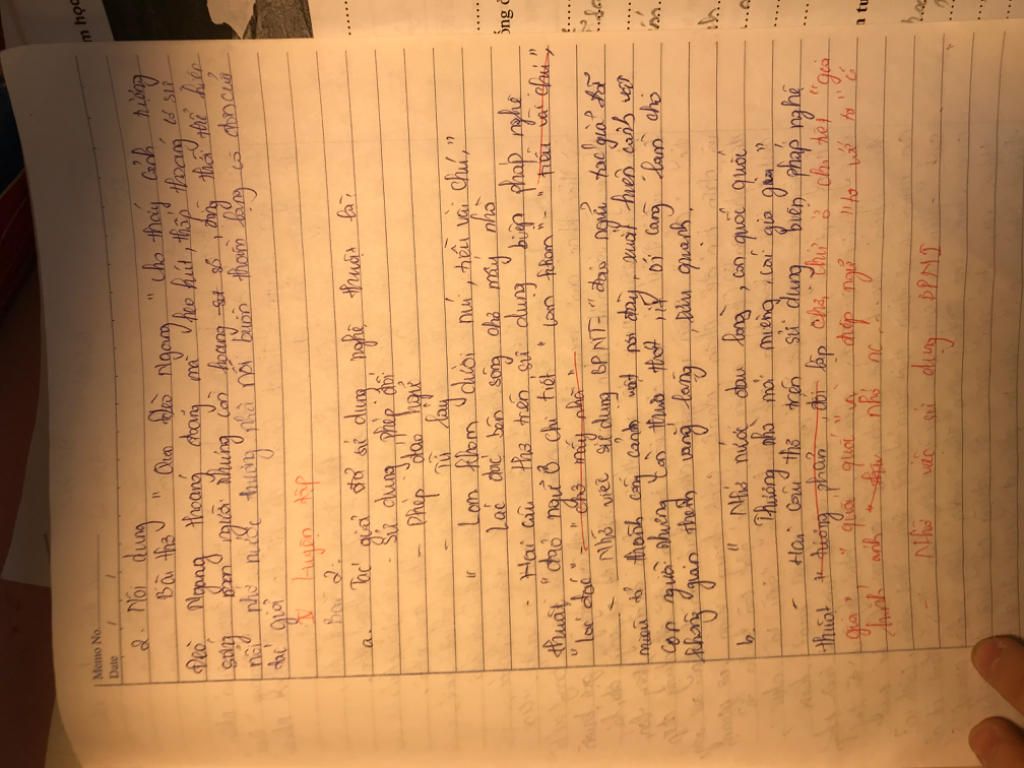 Memo No.
Date / /
2. Nội dung
Bài thơ "Qua Đèo Ngang" cho thấy cảnh tượng
Đèo Ngang thoáng đãng mà heo hút, thấp thoáng có sự
sống con người nhưng còn hoang sơ, đồng thời thể hiện
nỗi nhớ nước thương nhà nỗi buồn thầm lặng cô đơn của
tác giả
V Luyện tập
Bài 2:
a. Tác giả đã sử dụng nghệ thuật là:
- Sử dụng phép đối
- Phép đảo ngữ
- Từ láy
" Lom khom dưới núi, tiều vài chú,"
Lác đác bên sông chợ mấy nhà
- Hai câu thơ trên sử dụng biện pháp nghệ
thuật "đảo ngữ" ở chi tiết "Lom khom" - "tiều vài chú,"
"Lác đác" "chợ mấy nhà"
- Nhờ việc sử dụng BPNT: đảo ngữ tác giả đã
con người nhưng còn thưa thớt, ít ỏi càng làm cho
không gian thêm vắng lặng, hiu quạnh.
b. " Nhớ nước đau lòng, con quốc quốc
Thương nhà mỏi miệng, cái gia gia"
- Hai câu thơ trên sử dụng biện pháp nghệ
thuật "tương phản đối lập chơi chữ ở chi tiết "gia
gia" "quốc quốc" và điệp ngữ "
- Nhờ việc sử dụng BPNT